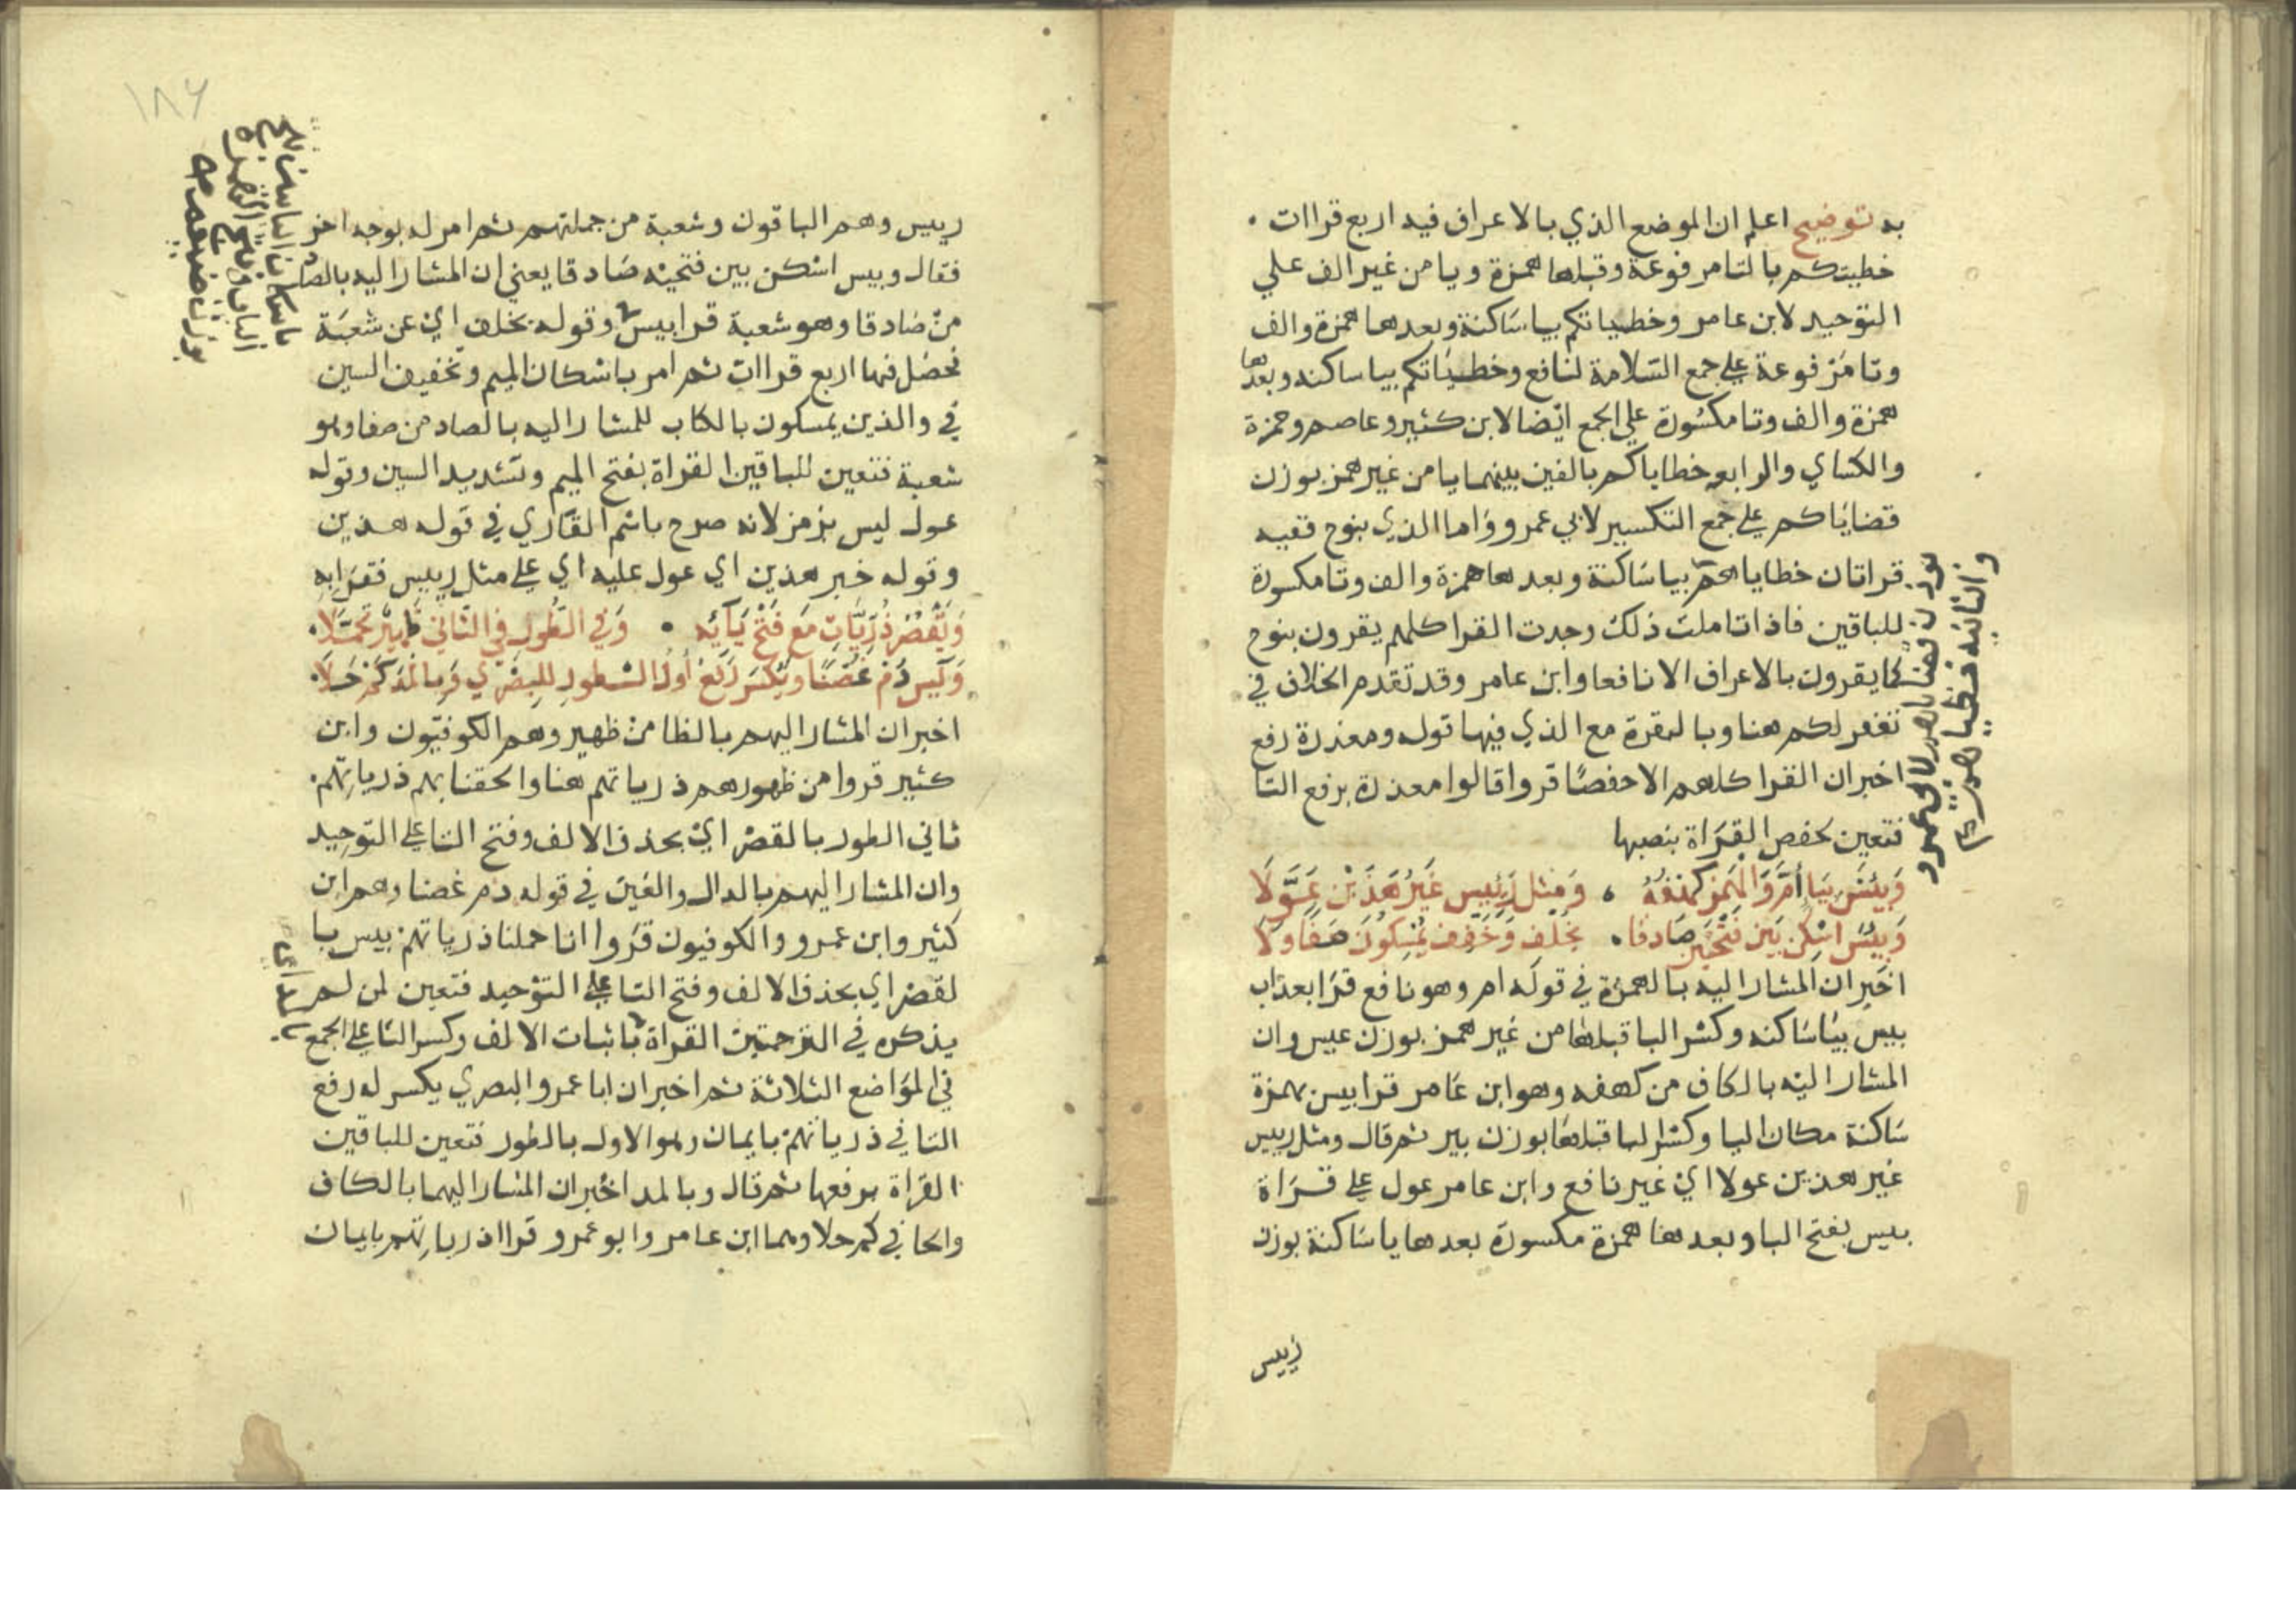 به توضيح اعلم ان الموضع الذي بالاعراف فيه اربع قراات .
خطيتكم بالتا مرفوعة وقبلها همزة ويا من غير الف علي
التوحيد لابن عامر وخطياتكم بيا ساكنة وبعدها همزة والف
وتا مرفوعة علي جمع السلامة لنافع وخطياتكم بيا ساكنه وبعدها
همزة والف وتا مكسورة علي الجمع ايضا لابن كثير وعاصم وحمزة
والكساي والرابع خطاياكم بالفين بينهما يا من غير همز بوزن
قضاياكم علي جمع التكسير لابي عمرو واما الذي بنوح ففيه
قراتان خطاياهم بيا ساكنة وبعدها همزة والف وتا مكسورة
للباقين فاذا تاملت ذلك وجدت القرا كلهم يقرون بنوح
كما يقرون بالاعراف الا نافعا وابن عامر وقد تقدم الخلاف في
تغفر لكم هنا وبالبقرة مع الذي فيها قوله ومعذرة رفع
اخبر ان القرا كلهم الا حفصا قروا قالوا معذرة برفع التا
فتعين لحفص القراة بنصبها
وَبِيْسٍ بِيَا أَمَّ وَالْهَمْزُ كَهْفُهُ . وَمِثْل رَئِيسٍ غَيْرُ هَذَيْنِ عَوَّلَا
وَبَيْئَسٍ اسْكِنْ بَيْنَ فَتْحَيْنِ صَادِقًا . بِخُلْفٍ وَخَفِّفْ يُمْسِكُونَ صَفَا وَلَا
اخبر ان المشار اليه بالهمزة في قوله ام وهو نافع قرا بعذاب
بيس بيا ساكنه وكسر البا قبلها من غير همز بوزن عيس وان
المشار اليه بالكاف من كهفه وهو ابن عامر قرا بيس بهمزة
ساكنة مكان اليا وكسر البا قبلها بوزن بير ثم قال ومثل رييس
غير هذين عولا اي غير نافع وابن عامر عول علي قراة
بييس بفتح البا وبعدها همزة مكسورة بعدها يا ساكنة بوزن
رييس
والثانيه خطيا
١٨٦
رييس وهم الباقون وشعبة من جملتهم ثم امر له بوجه اخر
فقال وبيس اسكن بين فتحيه صادقا يعني ان المشار اليه بالصاد
من صادقا وهو شعبة قرا بيس وقوله بخلف اي عن شعبة
فحصل فيها اربع قراات ثم امر باسكان الميم وتخفيف السين
في والذين يمسكون بالكتاب للمشار اليه بالصاد من صفا وهو
شعبة فتعين للباقين القراة بفتح الميم وتشديد السين وقوله
عول ليس برمز لانه صرح باسم القاري في قوله هذين
وقوله غير هذين اي عول عليه اي علي مثل رييس فقرا به
وَيَقْصُرُ ذُرِّيَّاتِ مَعَ فَتْحِ تَائِهِ . وَفِي الطُّورِ فِي الثَّانِي ظَهِيرٌ تَحَمَّلَا .
وَيَاسِينَ دُمْ غُصْنًا وَيُكْسَرُ رَفْعُ أَوَّلِ الطُّورِ لِلْبَصْرِي وَبِالْمَدِّ كَمْ حَلَا .
اخبر ان المشار اليهم بالظا من ظهير وهم الكوفيون وابن
كثير قروا من ظهورهم ذرياتهم هنا والحقنا بهم ذرياتهم .
ثاني الطور بالقصر اي بحذف الالف وفتح التا علي التوحيد
وان المشار اليهم بالدال والغين في قوله دم غصنا وهم ابن
كثير وابن عمرو والكوفيون قروا انا حملنا ذرياتهم بيس با
لقصر اي بحذف الالف وفتح التا علي التوحيد فتعين لمن لم
يذكره في الترجمتين القراة باثبات الالف وكسر التا علي الجمع
في المواضع الثلاثة ثم اخبر ان ابا عمرو البصري يكسر له رفع
التا في ذرياتهم بايمان وهو الاول بالطور فتعين للباقين
القراة برفعها ثم قال وبالمد اخبر ان المشار اليهما بالكاف
والحا في كم حلا وهما ابن عامر وابو عمرو قرا ذرياتهم بايمان